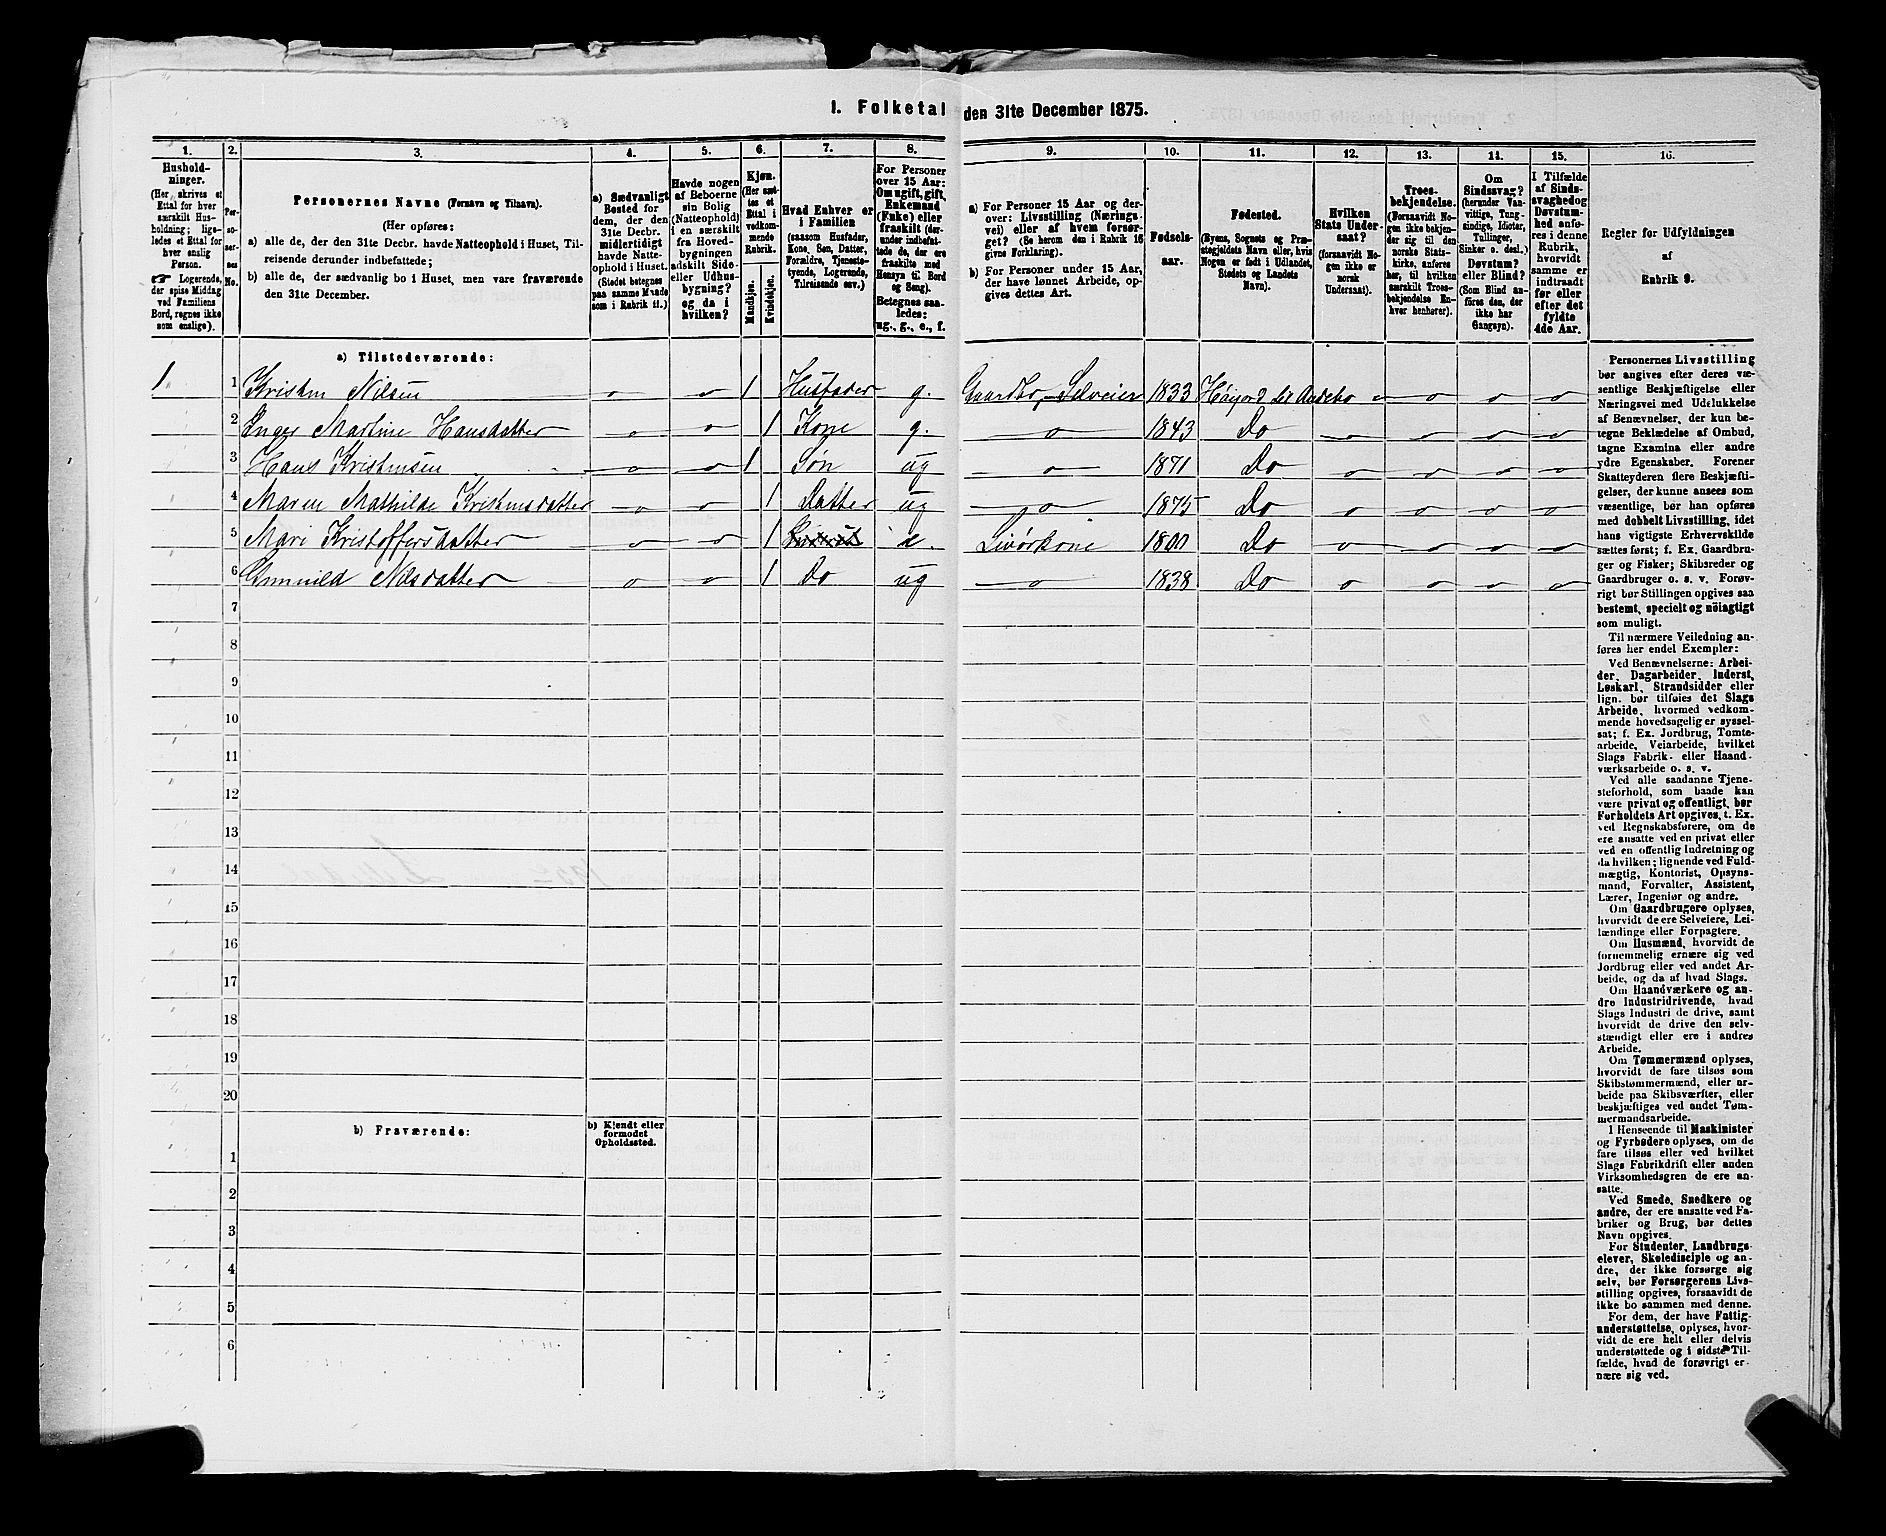 1. Folketal den 31te December 1875.
1. 2. 3. 4. 5. 6. 7. 8. 9. 10. 11. 12. 13. 14. 15. 16.
Hushold-
ninger.
(Her skrives et
Ettal for hver
særskilt Hus-
holdning; lige-
ledes et Ettal for
hver enslig
Person.
☞ Logerende,
der spise Middag
ved Familiens
Bord, regnes ikke
som enslige).
Per-
so-
ner-
nes
No.
Personernes Navne (Fornavn og Tilnavn).
(Her opføres:
a) alle de, der den 31te Decbr. havde Natteophold i Huset, Til-
reisende derunder indbefattede;
b) alle de, der sædvanlig bo i Huset, men vare fraværende
den 31te December.
a) Sædvanligt
Bosted for
dem, der den
31te Decbr.
midlertidigt
havde Natte-
ophold i Huset.
(Stedet betegnes
paa samme Maade
som i Rubrik 11.)
Havde nogen
af Beboerne
sin Bolig
(Natteophold)
i en særskilt
fra Hoved-
bygningen
adskilt Side-
eller Udhus-
bygning?
og da i
hvilken?
Kjøn.
(Her sæt-
tes et
Ettal i
vedkom-
mende
Rubrik.
Mandkjøn.
Kvindekjøn.
Hvad Enhver er
i Familien
(saasom Husfader,
Kone, Søn, Datter,
Forældre, Tjeneste-
tyende, Logerende,
Tilreisende osv.)
For Personer
over 15 Aar:
Om ugift, gift,
Enkemand
(Enke) eller
fraskilt (der-
under indbefat-
tede de, der ere
fraskilte med
Hensyn til Bord
og Seng).
Betegnes saa-
ledes:
ug., g., e., f.
a) For Personer 15 Aar og der-
over: Livsstilling (Nærings-
vei) eller af hvem forsør-
get? (Se herom den i Rubrik 16
givne Forklaring).
b) For Personer under 15 Aar,
der have lønnet Arbeide, op-
gives dettes Art.
Fødsels-
aar.
Fødested.
(Byens, Sognets og Præ-
stegjeldets Navn eller, hvis
Nogen er født i Udlandet,
Stedets og Landets
Navn).
Hvilken
Stats Under-
saat?
(forsaavidt No-
gen ikke er
norsk
Undersaat).
Troes-
bekjendelse.
(Forsaavidt No-
gen ikke bekjen-
der sig til den
norske Stats-
kirke, anføres
her, til hvilken
særskilt Troes-
bekjendelse En-
hver henhører).
Om
Sindssvag?
(herunder Van-
vittige, Tung-
sindige, Idioter,
Tullinger,
Sinker o. desl.)
Døvstum?
eller Blind?
(Som Blind an-
føres den, der
ikke har
Gangsyn).
I Tilfælde
af Sinds-
svaghed og
Døvstum-
hed anfø-
res i denne
Rubrik,
hvorvidt
samme er
indtraadt
før eller
efter det
fyldte
4de Aar.
Regler for Udfyldningen
af
Rubrik 9.
a) Tilstedeværende:
1 1 Kristen Nilsen o o 1 Husfader g. Gaardbr, Selveier 1833 o o o o
2 Inger Martine Hansdatter o o 1 Kone g. o 1843 Do o o o o
3 Hans Kristensen o o 1 Søn ug o 1871 Do o o o o
4 Maren Mathilde Kristensdatter o o 1 Datter ug o 1875 Do o o o o
5 Mari Kristoffersdatter o o 1 e. 1800 Do o o o o
6 Gunnild Nilsdatter o o 1 Do ug o 1838 Do o o o o
7
8
9
10
11
12
13
14
15
16
17
18
19
20
b) Fraværende:
b) Kjendt eller
formodet
Opholdssted.
1
2
3
4
5
6
Personernes Livsstilling
bør angives efter deres væ-
sentlige Beskjæftigelse eller
Næringsvei med Udelukkelse
af Benævnelser, der kun be-
tegne Beklædelse af Ombud,
tagne Examina eller andre
ydre Egenskaber. Forener
Skatteyderen flere Beskjæfti-
gelser, der kunne ansees som
væsentlige, bør han opføres
med dobbelt Livsstilling, idet
hans vigtigste Erhvervskilde
sættes først; f. Ex. Gaardbru-
ger og Fisker; Skibsreder og
Gaardbruger o. s. v. Forøv-
rigt bør Stillingen opgives saa
bestemt, specielt og nöiagtigt
som muligt.
Til nærmere Veiledning an-
føres her endel Exempler:
Ved Benævnelserne: Arbei-
der, Dagarbeider, Inderst,
Løskarl, Strandsidder eller
lign. bør tilføies det Slags
Arbeide, hvormed vedkom-
mende hovedsagelig er syssel-
sat; f. Ex. Jordbrug, Tomte-
arbeide, Veiarbeide, hvilket
Slags Fabrik- eller Haand-
værksarbeide o. s. v.
Ved alle saadanne Tjene-
steforhold, som baade kan
være privat og offentligt, bør
Forholdets Art opgives, t. Ex.
ved Regnskabsførere, om de
ere ansatte ved en privat eller
ved en offentlig Indretning og
da hvilken; lignende ved Fuld-
mægtig, Kontorist, Opsyns-
mand, Forvalter, Assistent,
Lærer, Ingeniør og andre.
Om Gaardbrugere oplyses,
hvorvidt de ere Selveiere, Lei-
lændinge eller Forpagtere.
Om Husmænd, hvorvidt de
fornemmelig ernære sig ved
Jordbrug eller ved andet Ar-
beide, og da af hvad Slags.
Om Haandværkere og an-
dre Industridrivende, hvad
Slags Industri de drive, samt
hvorvidt de drive den selv-
stændigt eller ere i andres
Arbeide.
Om Tømmermænd oplyses,
hvorvidt de fare tilsøs som
Skibstømmermænd, eller ar-
beide paa Skibsværfter, eller
beskjæftiges ved andet Tøm-
mermandsarbeide.
I Henseende til Maskinister
og Fyrbødere oplyses, om de
fare tilsøs eller ved hvilket
Slags Fabrikdrift eller anden
Virksomhedsgren de ere an-
satte.
Ved Smede, Snedkere og
andre, der ere ansatte ved Fa-
briker og Brug, bør dettes
Navn opgives.
For Studenter, Landbrugs-
elever, Skoledisciple og an-
dre, der ikke forsørge sig
selv, bør Forsørgerens Livs-
stilling opgives, forsaavidt de
ikke bo sammen med denne.
For dem, der have Fattig-
understøttelse, oplyses, hvor-
vidt de ere helt eller delvis
understøttede og i sidste Til-
fælde, hvad de forøvrigt er-
nære sig ved.